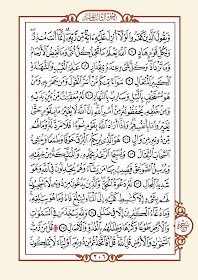 وَيَقُولُ الَّذِينَ كَفَرُوا لَوْلَا أُنزِلَ عَلَيْهِ ءَايَةٌ مِّن رَّبِّهِ إِنَّمَا أَنتَ مُنذِرٌ
وَلِكُلِّ قَوْمٍ هَادٍ ٧ اللَّهُ يَعْلَمُ مَا تَحْمِلُ كُلُّ أُنثَىٰ وَمَا تَغِيضُ الْأَرْحَامُ
وَمَا تَزْدَادُ وَكُلُّ شَيْءٍ عِندَهُ بِمِقْدَارٍ ٨ عَالِمُ الْغَيْبِ وَالشَّهَادَةِ
الْكَبِيرُ الْمُتَعَالِ ٩ سَوَاءٌ مِّنكُم مَّنْ أَسَرَّ الْقَوْلَ وَمَن جَهَرَ بِهِ وَمَنْ
هُوَ مُسْتَخْفٍ بِاللَّيْلِ وَسَارِبٌ بِالنَّهَارِ ١٠ لَهُ مُعَقِّبَاتٌ مِّن بَيْنِ يَدَيْهِ
وَمِنْ خَلْفِهِ يَحْفَظُونَهُ مِنْ أَمْرِ اللَّهِ إِنَّ اللَّهَ لَا يُغَيِّرُ مَا بِقَوْمٍ حَتَّىٰ
يُغَيِّرُوا مَا بِأَنفُسِهِمْ وَإِذَا أَرَادَ اللَّهُ بِقَوْمٍ سُوءًا فَلَا مَرَدَّ لَهُ وَمَا لَهُم
مِّن دُونِهِ مِن وَالٍ ١١ هُوَ الَّذِي يُرِيكُمُ الْبَرْقَ خَوْفًا وَطَمَعًا وَيُنشِئُ
السَّحَابَ الثِّقَالَ ١٢ وَيُسَبِّحُ الرَّعْدُ بِحَمْدِهِ وَالْمَلَائِكَةُ مِنْ خِيفَتِهِ
وَيُرْسِلُ الصَّوَاعِقَ فَيُصِيبُ بِهَا مَن يَشَاءُ وَهُمْ يُجَادِلُونَ فِي اللَّهِ وَهُوَ
شَدِيدُ الْمِحَالِ ١٣ لَهُ دَعْوَةُ الْحَقِّ وَالَّذِينَ يَدْعُونَ مِن دُونِهِ لَا يَسْتَجِيبُونَ
لَهُم بِشَيْءٍ إِلَّا كَبَاسِطِ كَفَّيْهِ إِلَى الْمَاءِ لِيَبْلُغَ فَاهُ وَمَا هُوَ بِبَالِغِهِ
وَمَا دُعَاءُ الْكَافِرِينَ إِلَّا فِي ضَلَالٍ ١٤ وَلِلَّهِ يَسْجُدُ مَن فِي السَّمَاوَاتِ
وَالْأَرْضِ طَوْعًا وَكَرْهًا وَظِلَالُهُم بِالْغُدُوِّ وَالْآصَالِ ١٥ قُلْ مَن رَّبُّ
السَّمَاوَاتِ وَالْأَرْضِ قُلِ اللَّهُ قُلْ أَفَاتَّخَذْتُم مِّن دُونِهِ أَوْلِيَاءَ لَا يَمْلِكُونَ